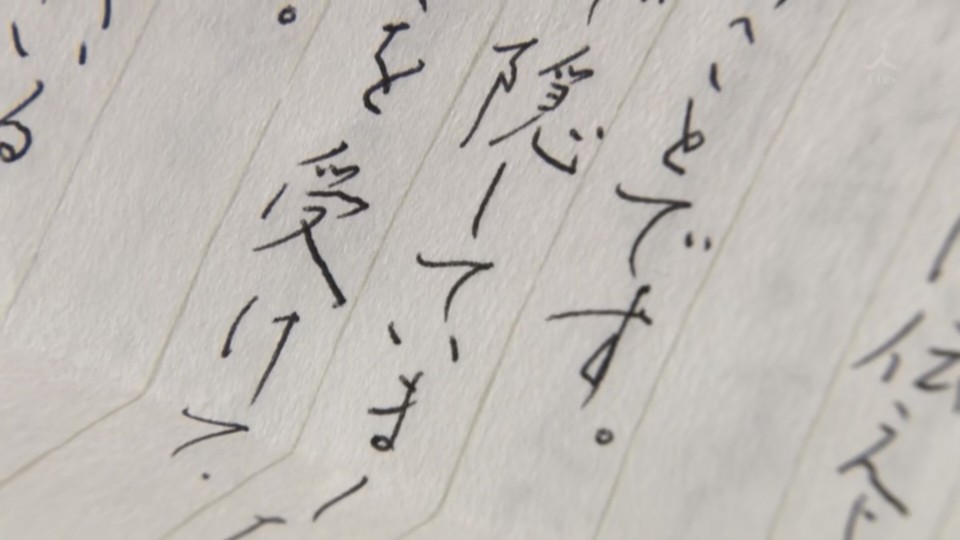 伝え
ことです。
隠していまし
を受け
る